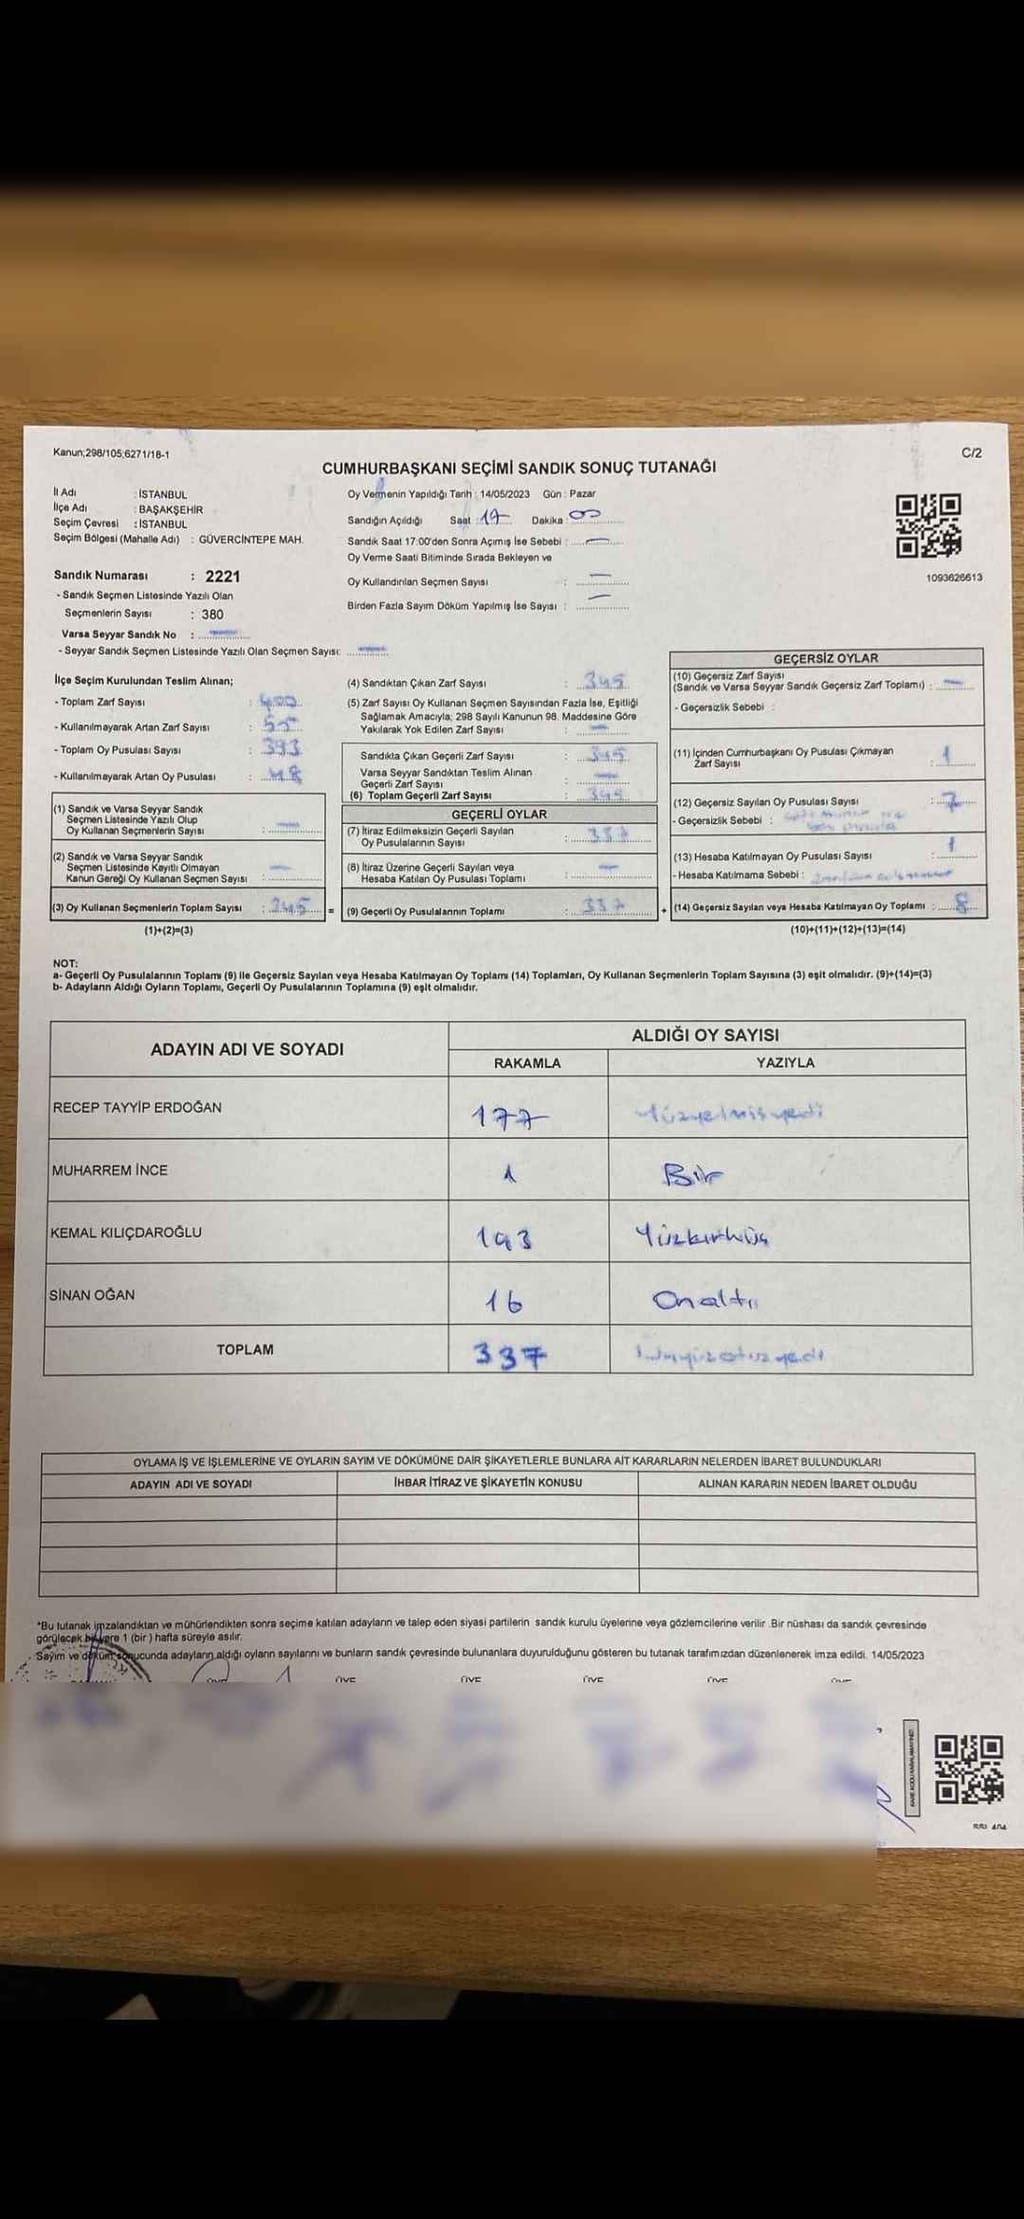 Kanun;298/105;6271/18-1
C/2
CUMHURBAŞKANI SEÇİMİ SANDIK SONUÇ TUTANAĞI
İl Adı : İSTANBUL
İlçe Adı : BAŞAKŞEHİR
Seçim Çevresi : İSTANBUL
Seçim Bölgesi (Mahalle Adı) : GÜVERCİNTEPE MAH.
Sandık Numarası : 2221
- Sandık Seçmen Listesinde Yazılı Olan
Seçmenlerin Sayısı : 380
Varsa Seyyar Sandık No : —
- Seyyar Sandık Seçmen Listesinde Yazılı Olan Seçmen Sayısı: —
Oy Vermenin Yapıldığı Tarih : 14/05/2023 Gün : Pazar
Sandığın Açıldığı Saat : 17 Dakika : 00
Sandık Saat 17:00'den Sonra Açımış İse Sebebi : —
Oy Verme Saati Bitiminde Sırada Bekleyen ve
Oy Kullandırılan Seçmen Sayısı : —
Birden Fazla Sayım Döküm Yapılmış İse Sayısı : —
1093626613
İlçe Seçim Kurulundan Teslim Alınan;
- Toplam Zarf Sayısı : 400
- Kullanılmayarak Artan Zarf Sayısı : 55
- Toplam Oy Pusulası Sayısı : 393
- Kullanılmayarak Artan Oy Pusulası : 48
(1) Sandık ve Varsa Seyyar Sandık
Seçmen Listesinde Yazılı Olup
Oy Kullanan Seçmenlerin Sayısı : —
(2) Sandık ve Varsa Seyyar Sandık
Seçmen Listesinde Kayıtlı Olmayan
Kanun Gereği Oy Kullanan Seçmen Sayısı : —
(3) Oy Kullanan Seçmenlerin Toplam Sayısı : 345 =
(1)+(2)=(3)
(4) Sandıktan Çıkan Zarf Sayısı : 345
(5) Zarf Sayısı Oy Kullanan Seçmen Sayısından Fazla İse, Eşitliği
Sağlamak Amacıyla; 298 Sayılı Kanunun 98. Maddesine Göre
Yakılarak Yok Edilen Zarf Sayısı : —
Sandıkla Çıkan Geçerli Zarf Sayısı : 345
Varsa Seyyar Sandıktan Teslim Alınan
Geçerli Zarf Sayısı : —
(6) Toplam Geçerli Zarf Sayısı : 345
GEÇERLİ OYLAR
(7) İtiraz Edilmeksizin Geçerli Sayılan
Oy Pusulalarının Sayısı : 337
(8) İtiraz Üzerine Geçerli Sayılan veya
Hesaba Katılan Oy Pusulası Toplamı : —
(9) Geçerli Oy Pusulalarının Toplamı : 337 +
GEÇERSİZ OYLAR
(10) Geçersiz Zarf Sayısı
(Sandık ve Varsa Seyyar Sandık Geçersiz Zarf Toplamı) : —
- Geçersizlik Sebebi :
(11) İçinden Cumhurbaşkanı Oy Pusulası Çıkmayan
Zarf Sayısı : 1
(12) Geçersiz Sayılan Oy Pusulası Sayısı : 7
- Geçersizlik Sebebi :
(13) Hesaba Katılmayan Oy Pusulası Sayısı : 1
- Hesaba Katılmama Sebebi :
(14) Geçersiz Sayılan veya Hesaba Katılmayan Oy Toplamı : 8
(10)+(11)+(12)+(13)=(14)
NOT:
a- Geçerli Oy Pusulalarının Toplamı (9) ile Geçersiz Sayılan veya Hesaba Katılmayan Oy Toplamı (14) Toplamları, Oy Kullanan Seçmenlerin Toplam Sayısına (3) eşit olmalıdır. (9)+(14)=(3)
b- Adayların Aldığı Oyların Toplamı, Geçerli Oy Pusulalarının Toplamına (9) eşit olmalıdır.
ADAYIN ADI VE SOYADI ALDIĞI OY SAYISI
RAKAMLA YAZIYLA
RECEP TAYYİP ERDOĞAN 177 Yüzyetmişyedi
MUHARREM İNCE 1 Bir
KEMAL KILIÇDAROĞLU 143 Yüzkırküç
SİNAN OĞAN 16 Onaltı
TOPLAM 337 üçyüzotuzyedi
OYLAMA İŞ VE İŞLEMLERİNE VE OYLARIN SAYIM VE DÖKÜMÜNE DAİR ŞİKAYETLERLE BUNLARA AİT KARARLARIN NELERDEN İBARET BULUNDUKLARI
ADAYIN ADI VE SOYADI İHBAR İTİRAZ VE ŞİKAYETİN KONUSU ALINAN KARARIN NEDEN İBARET OLDUĞU
*Bu tutanak imzalandıktan ve mühürlendikten sonra seçime katılan adayların ve talep eden siyasi partilerin sandık kurulu üyelerine veya gözlemcilerine verilir .Bir nüshası da sandık çevresinde
görülecek bir yere 1 (bir ) hafta süreyle asılır.
Sayım ve döküm sonucunda adayların aldığı oyların sayılarını ve bunların sandık çevresinde bulunanlara duyurulduğunu gösteren bu tutanak tarafımızdan düzenlenerek imza edildi. 14/05/2023
ÜYE ÜYE ÜYE ÜYE